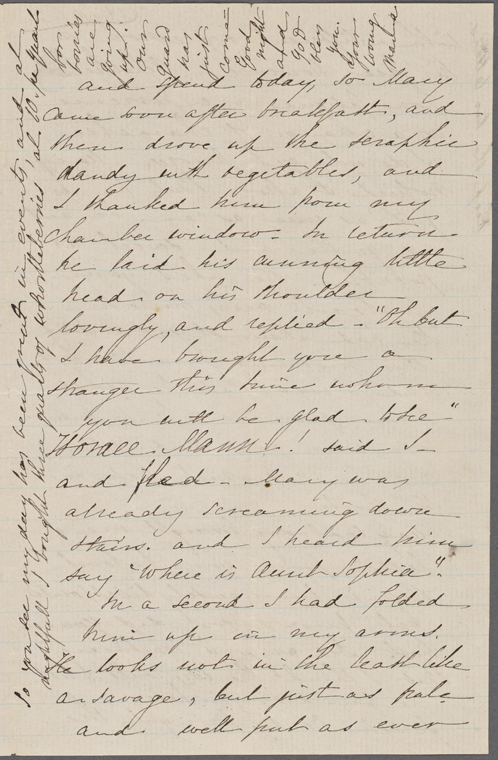 and spend today, so Mary
came soon after breakfast, and
then drove up the seraphic
dandy with vegetables, and
I thanked him from my
chamber window. In return
he laid his cunning little
head on his shoulder
lovingly, and replied - "Oh but
I have brought you a
stranger this time whom
you will be glad to see"
Horace Mann! ! said I -
and fled - Mary was
already screaming down
stairs. and I heard him
say "Where is Aunt Sophia".
In a second I had folded
him up in my arms.
He looks not in the least like
a savage, but just as pale
and well put as ever
So you see my day has been great in events, and at
nightfall I bought three quarts of whortleberries at 10. per quart
for
berries
are
going
up.
Our
guard
has
just
come
Good
night
and
God
bless
you.
Your
loving